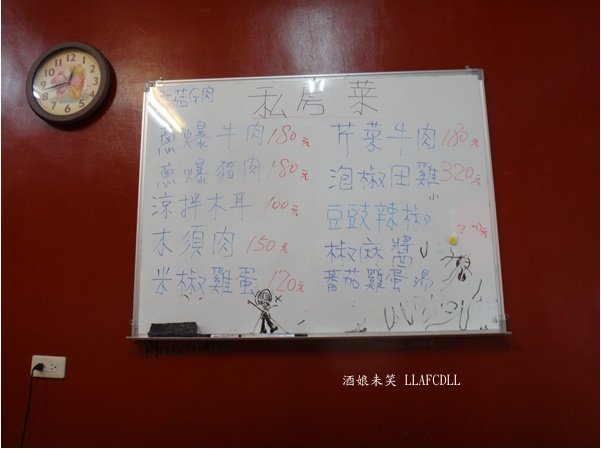 私房菜
蔥爆牛肉180元
蔥爆豬肉180元
涼拌木耳100元
木須肉150元
米椒雞蛋120元
芹菜牛肉180元
泡椒田雞320元
小
豆豉辣椒
椒麻醬
蕃茄雞蛋湯
酒娘未笑 LLAFCDLL